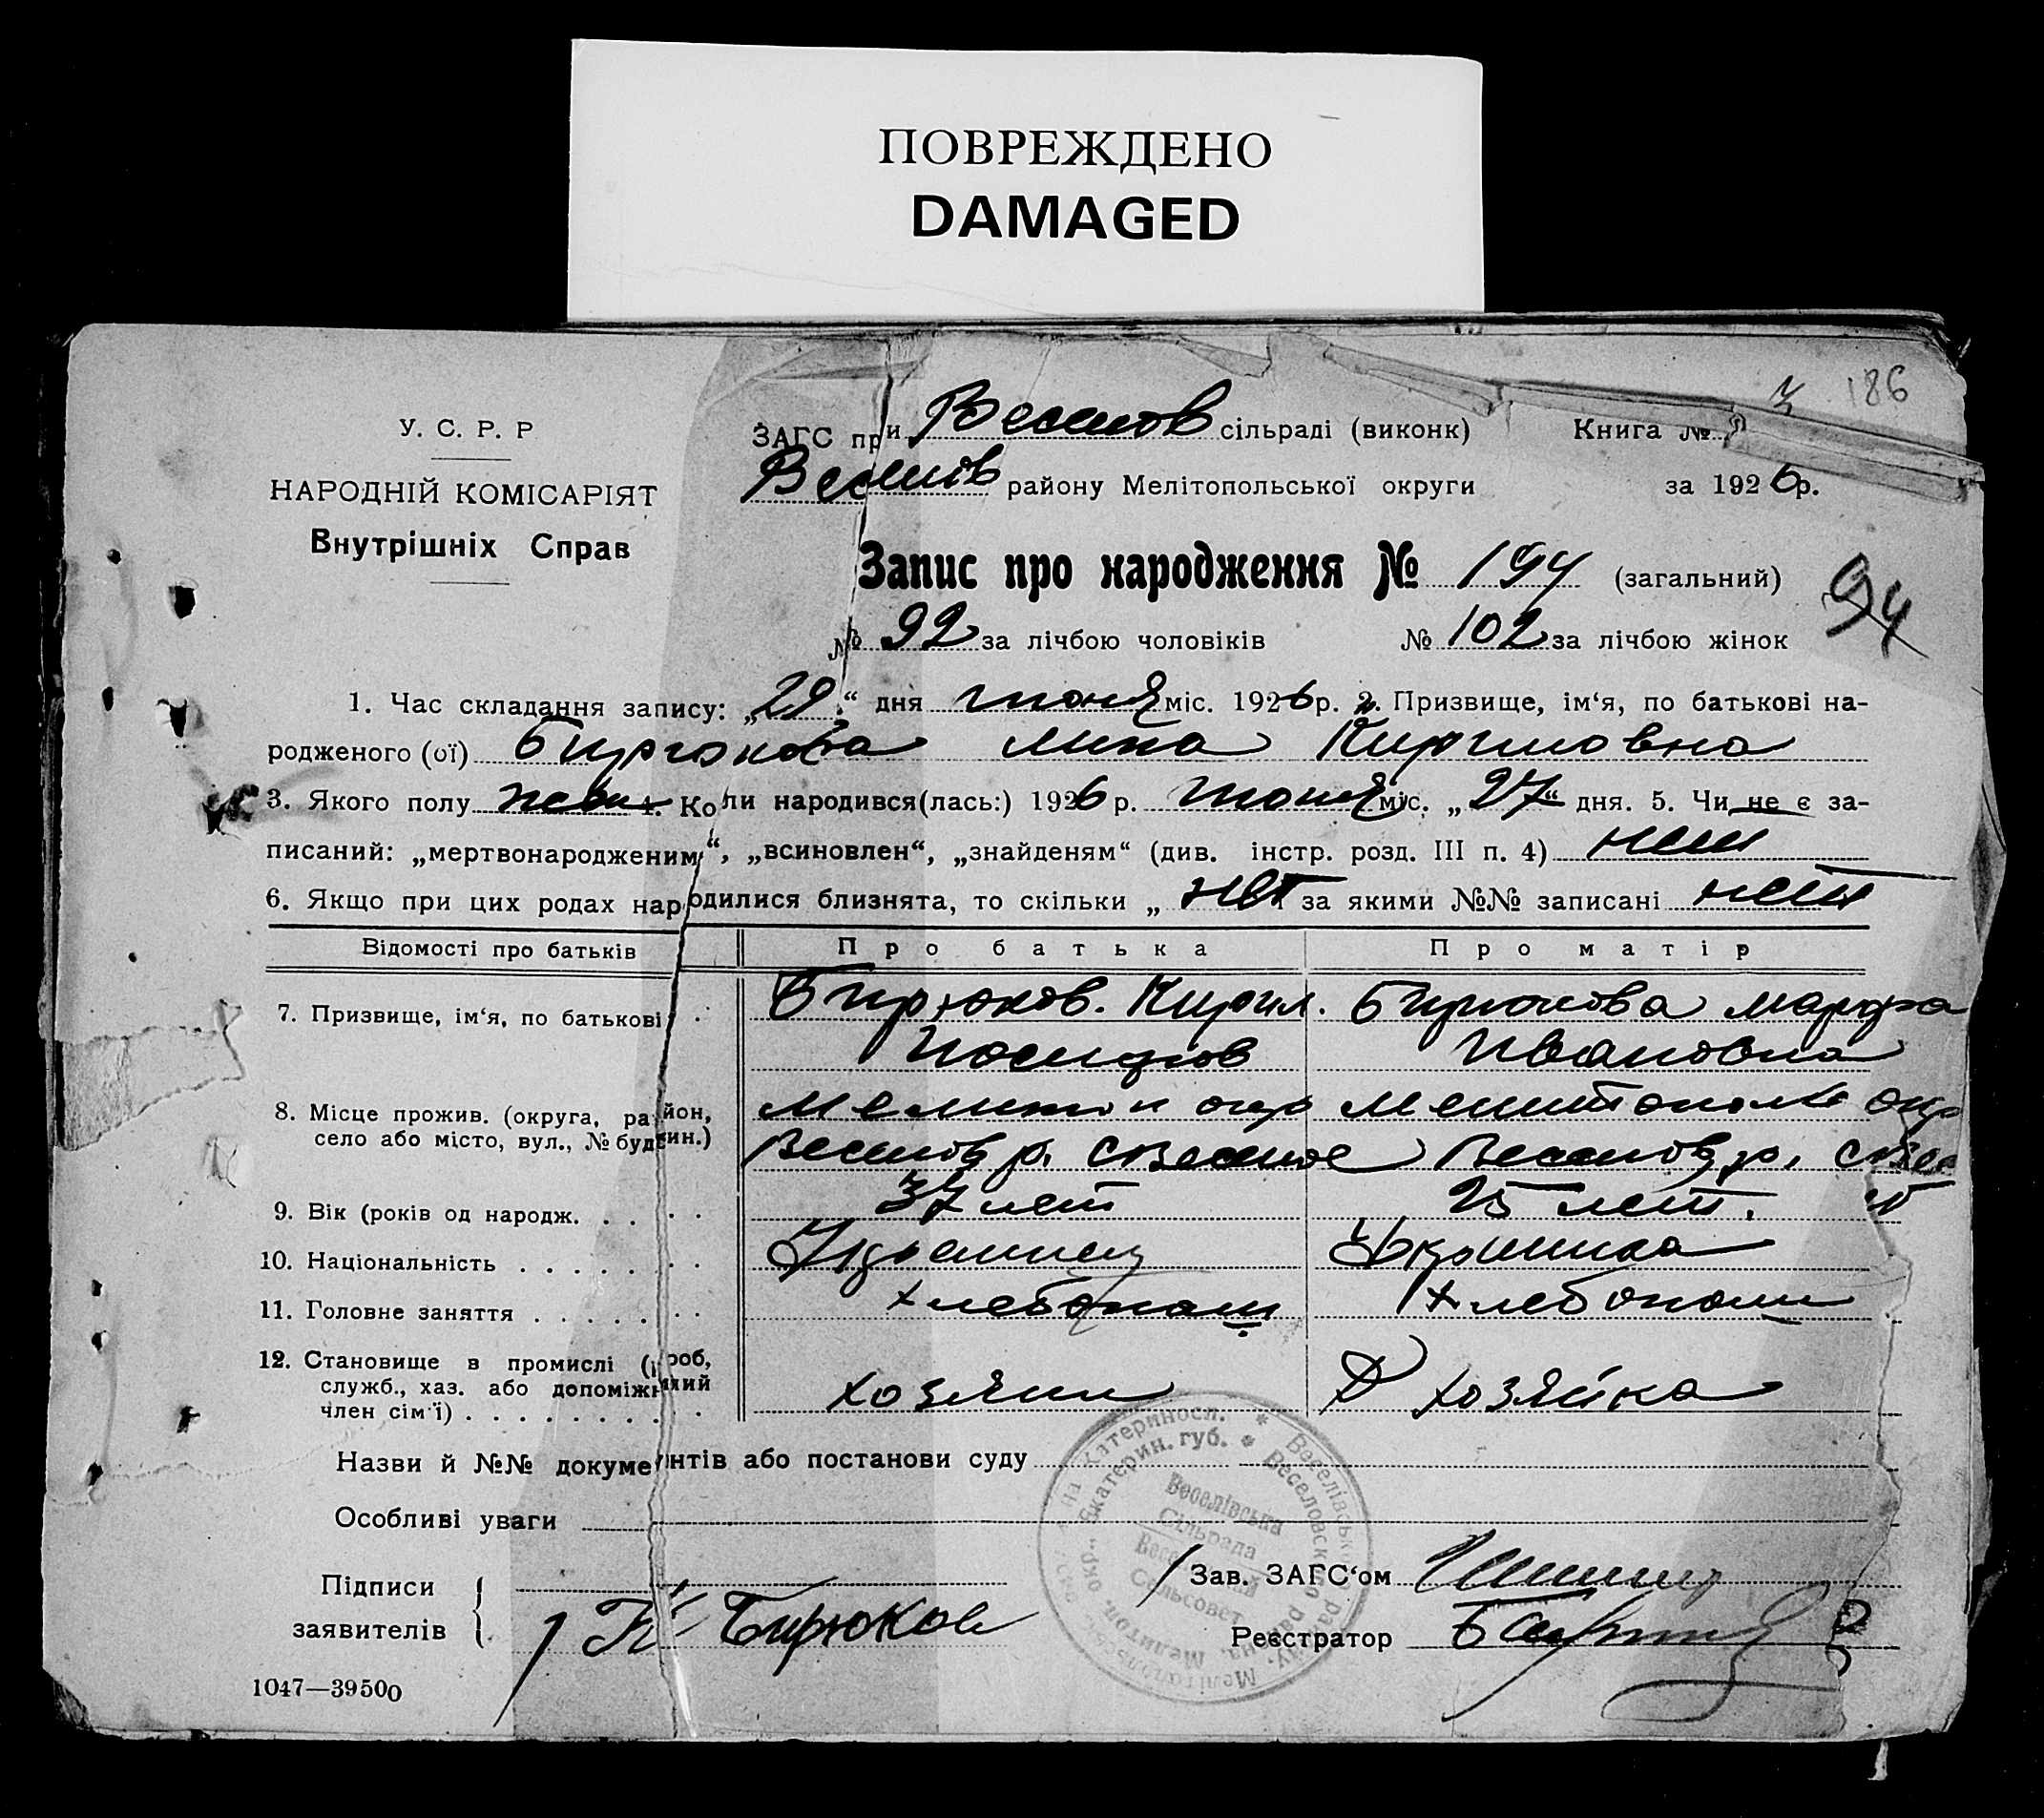 ПОВРЕЖДЕНО
DAMAGED
186
У. С. Р. Р
ЗАГС при Веселов сільраді (виконк) Книга № 3
НАРОДНІЙ КОМІСАРІЯТ
Веселов району Мелітопольської округи за 1926 р.
Внутрішніх Справ
Запис про народження № 194 (загальний)
94
№ 92 за лічбою чоловіків № 102 за лічбою жінок
1. Час складання запису: „29“ дня июня міс. 1926 р. 2. Призвище, ім‘я, по батькові на-
родженого (ої) Бирюкова Кириловна
3. Якого полу жен 4. Коли народився(лась:) 1926 р. июня міс. „27“ дня. 5. Чи не є за-
писаний: „мертвонародженим“, „всиновлен“, „знайденям“ (див. інстр. розд. III п. 4) нет
6. Якщо при цих родах народилися близнята, то скільки „ нет за якими №№ записані нет
Відомості про батьків Про батька Про матір
7. Призвище, ім‘я, по батькові Бирюков. Кирил. Бирюкова Марфа
Иосифов Ивановна
8. Місце прожив. (округа, район, Мелитоп окр Мелитополь окр
село або місто, вул., № будин.) Веселов р. с Веселое Веселов р. с Весе
9. Вік (років од народж. 37 лет 25 лет.
10. Національність Украинец Украинка
11. Головне заняття хлебопаш хлебопаш
12. Становище в промислі (роб,
служб., хаз. або допоміжний хозяин хозяйка
член сім‘ї)
Назви й №№ документів або постанови суду
Особливі уваги
Підписи Зав. ЗАГС‘ом
заявителів К Бирюков Реєстратор
Веселівська
Сільрада
Веселовский
Сельсовет
1047—39500